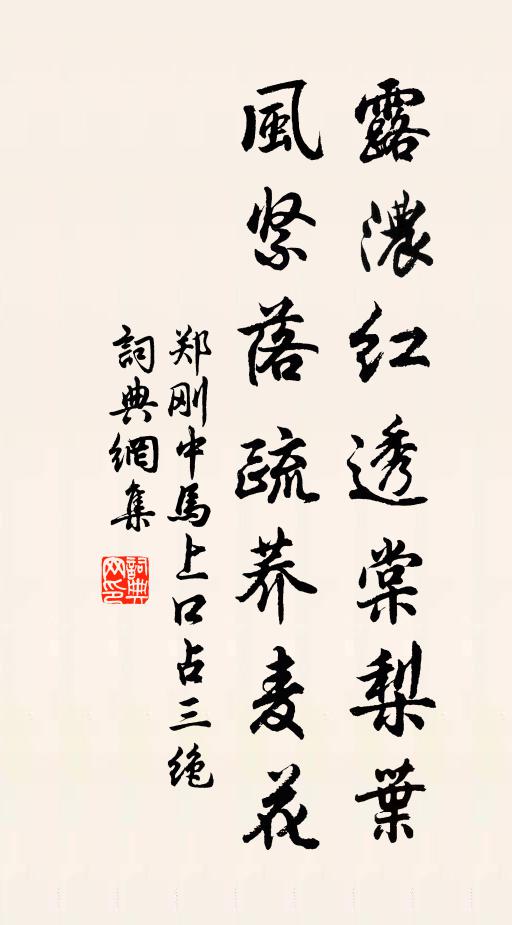 露濃红透棠梨葉
風紧落疏荞麦花
郑刚中馬上口占三绝
詞典網集
詞典网印